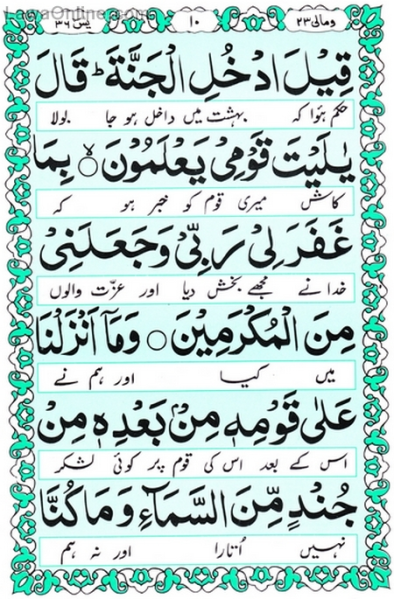 LawaOnline.com
ومالی ۲۳ ۱۰ یٰس ۳۶
قِيْلَ ادْخُلِ الْجَنَّةَ ؕ قَالَ
حکم ہوا کہ بہشت میں داخل ہو جا بولا
يٰلَيْتَ قَوْمِيْ يَعْلَمُوْنَ ۙ بِمَا
کاش میری قوم کو خبر ہو کہ
غَفَرَ لِيْ رَبِّيْ وَجَعَلَنِيْ
خدا نے مجھے بخش دیا اور عزّت والوں
مِنَ الْمُكْرَمِيْنَ ۝ وَمَاۤ اَنْزَلْنَا
میں کیا اور ہم نے
عَلٰى قَوْمِهٖ مِنْۢ بَعْدِهٖ مِنْ
اس کے بعد اس کی قوم پر کوئی لشکر
جُنْدٍ مِّنَ السَّمَآءِ وَمَا كُنَّا
نہیں اُتارا اور نہ ہم